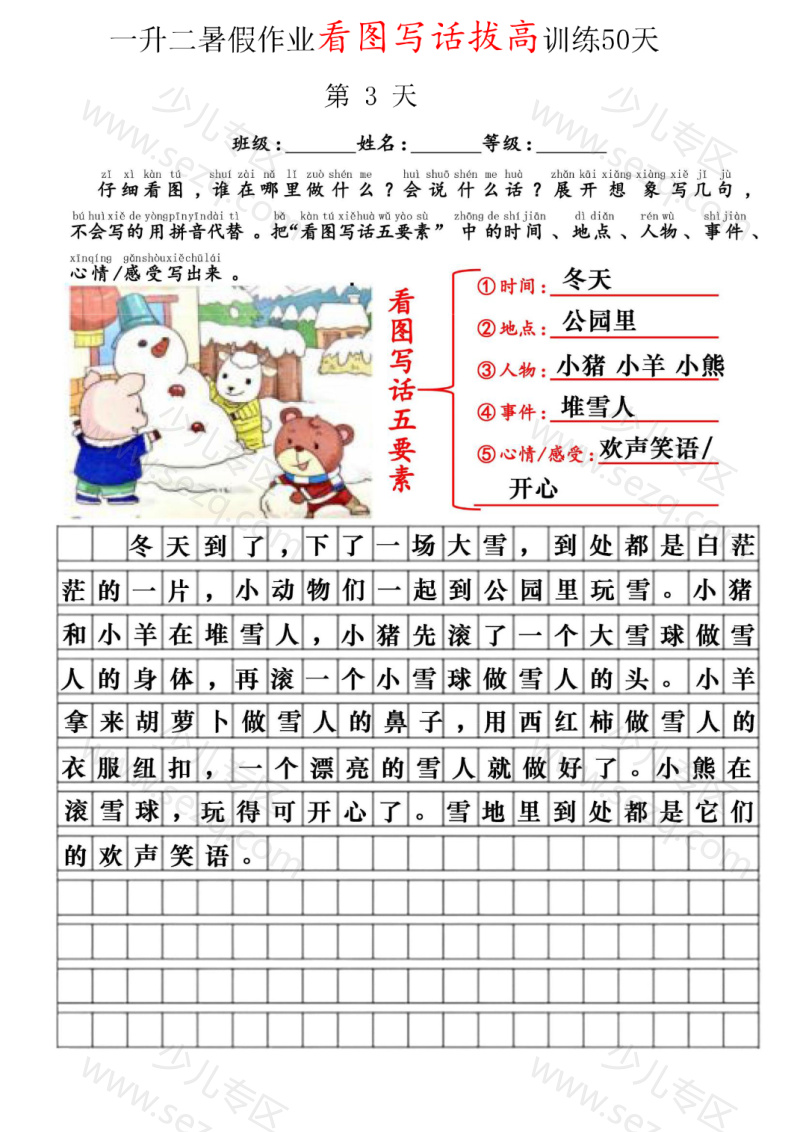 一升二暑假作业看图写话拔高训练50天
第 3 天
班级:______姓名:______等级:______
zǐ xì kàn tú shuí zài nǎ lǐ zuò shén me huì shuō shén me huà zhǎn kāi xiǎng xiàng xiě jǐ jù
仔细看图，谁在哪里做什么？会说什么话？展开想象写几句，
bú huì xiě de yòng pīn yīn dài tì bǎ kàn tú xiě huà wǔ yào sù zhōng de shí jiān dì diǎn rén wù shì jiàn
不会写的用拼音代替。把“看图写话五要素”中的时间、地点、人物、事件、
xīn qíng gǎn shòu xiě chū lái
心情/感受写出来。
看图写话五要素
①时间：冬天
②地点：公园里
③人物：小猪 小羊 小熊
④事件：堆雪人
⑤心情/感受：欢声笑语/
开心
冬天到了，下了一场大雪，到处都是白茫
茫的一片，小动物们一起到公园里玩雪。小猪
和小羊在堆雪人，小猪先滚了一个大雪球做雪
人的身体，再滚一个小雪球做雪人的头。小羊
拿来胡萝卜做雪人的鼻子，用西红柿做雪人的
衣服纽扣，一个漂亮的雪人就做好了。小熊在
滚雪球，玩得可开心了。雪地里到处都是它们
的欢声笑语。
少儿专区
www.sezq.com